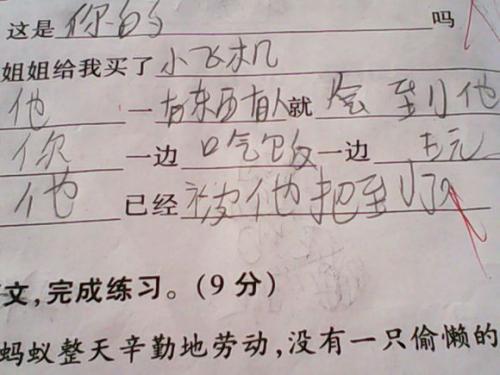 这是你的吗
姐姐给我买了小飞机
他一有东西有人就会到他
你一边口吃饭一边
他已经被他把到了
文,完成练习。(9分)
蚂蚁整天辛勤地劳动,没有一只偷懒的